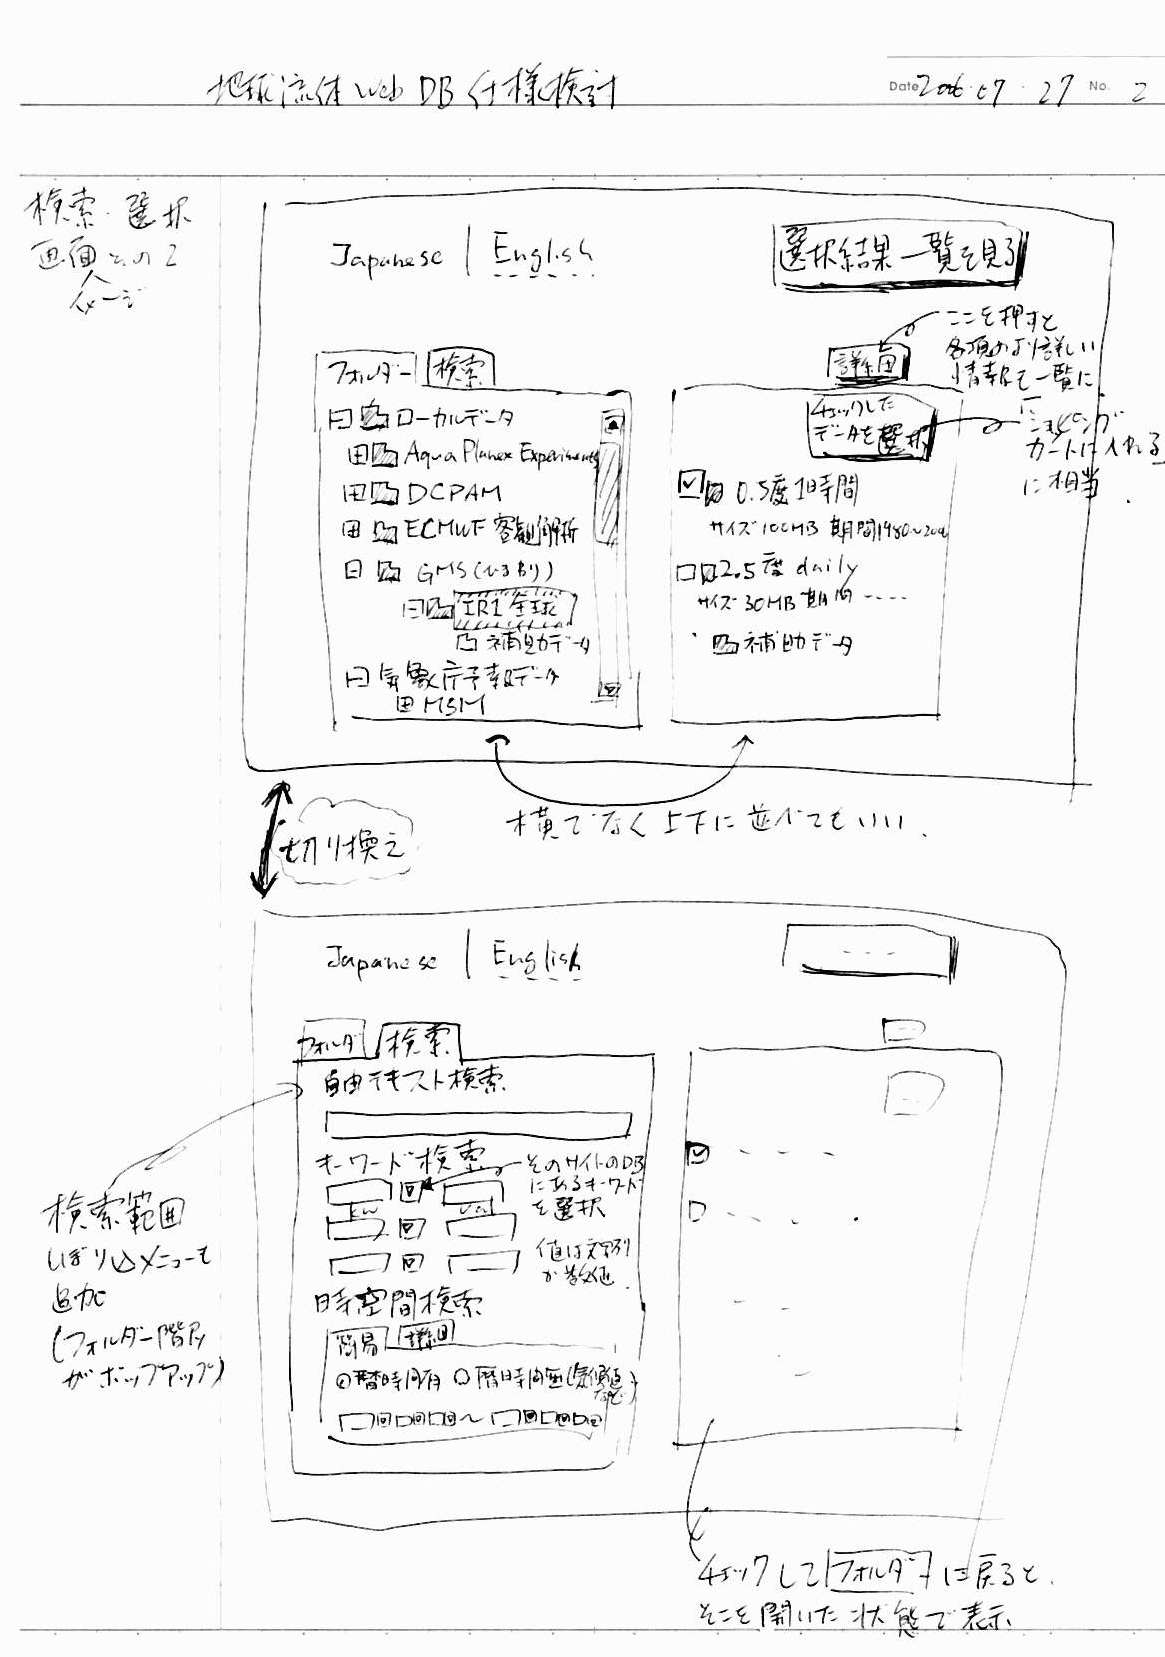 地球流体 Web DB 仕様検討
Date 2006・07・27 No. 2
検索・選択
画面その2
イメージ
Japanese | English
選択結果一覧を見る
ここを押すと
各項のより詳しい
情報を一覧に
フォルダー 検索
詳細
ローカルデータ
Aqua Planet Experiments
DCPAM
ECMWF 客観解析
GMS (ひまわり)
IR1 全球
補助データ
気象庁予報データ
MSM
チェックした
データを選択
ショッピング
カートに入れる
に相当.
0.5度 1時間
サイズ 100MB 期間 1980〜200
2.5度 daily
サイズ 30MB 期間 ----
補助データ
横でなく上下に並べてもいい.
切り換え
Japanese | English
フォルダ 検索
自由テキスト検索
キーワード検索
そのサイトのDB
にあるキーワード
を選択
kw val
値は文字列
か数値.
時空間検索
簡易 詳細
暦時間有 暦時間無(気候値
など)
〜
検索範囲
しぼり込メニューも
追加
(フォルダー階層
がポップアップ)
チェックしてフォルダーに戻ると、
そこを開いた状態で表示